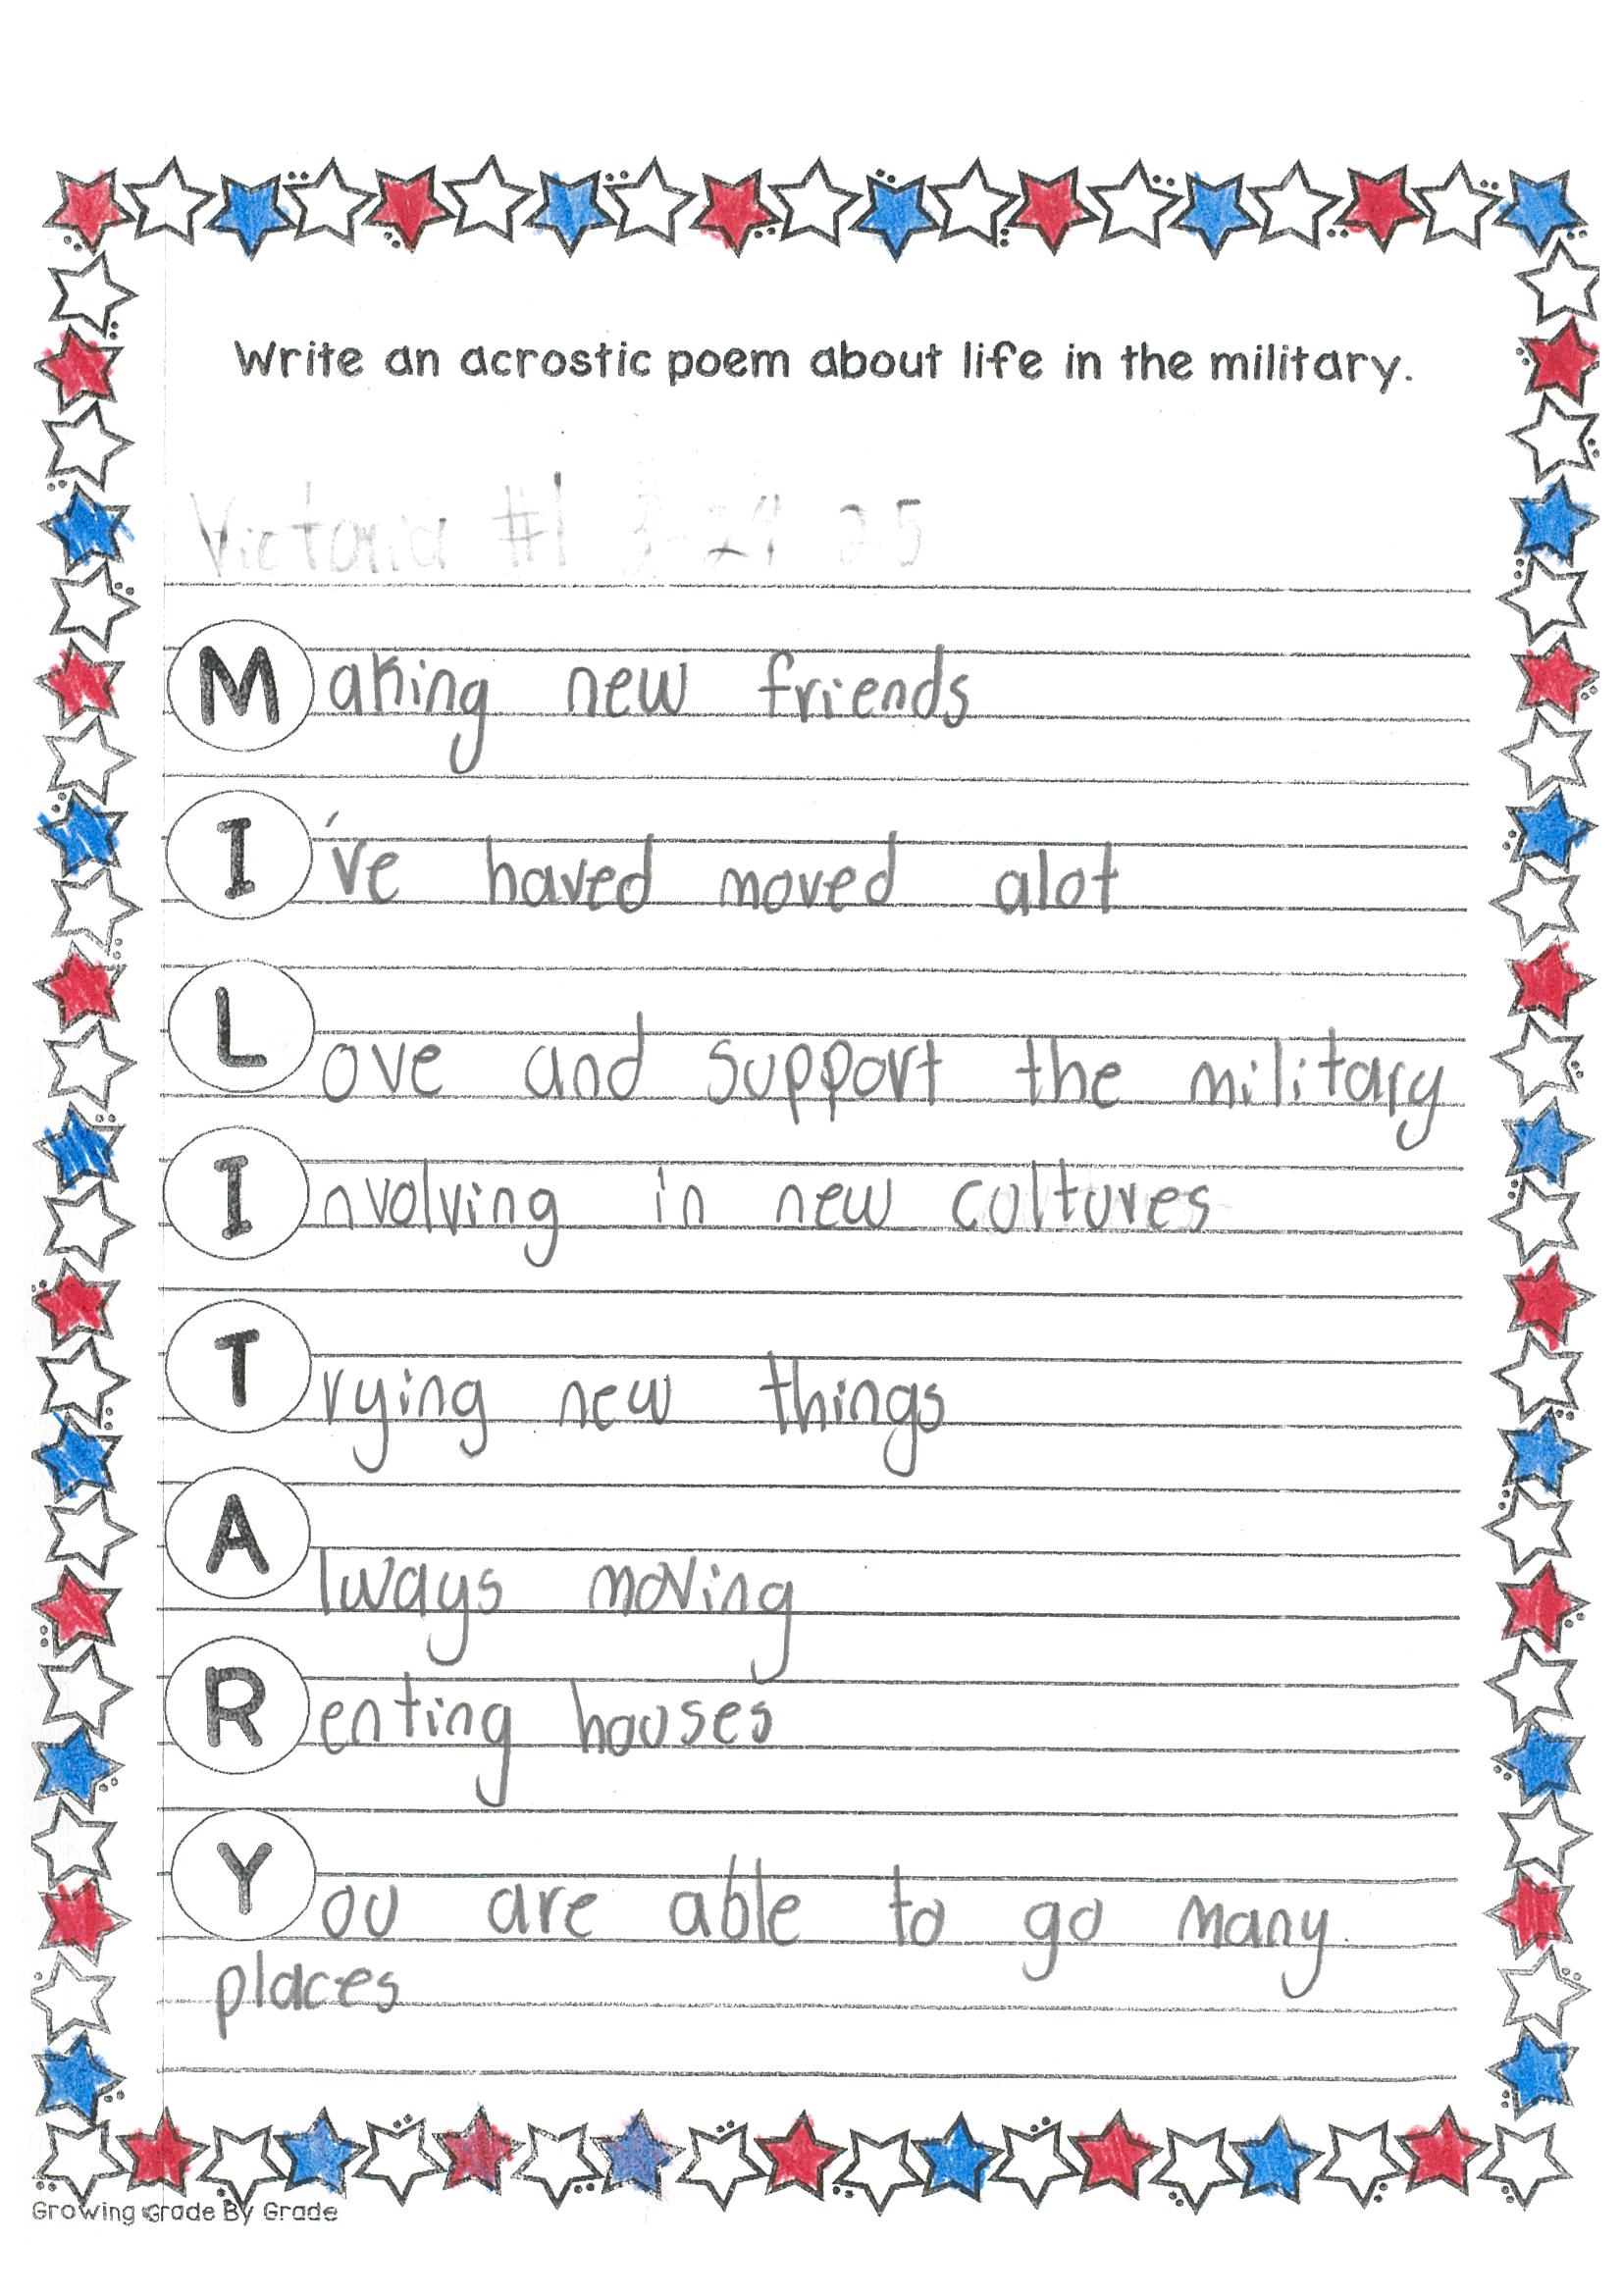 Write an acrostic poem about life in the military.
Victoria #1 3-24 25
Making new friends
I've haved moved alot
Love and support the military
Involving in new cultures
Trying new things
Always moving
Renting houses
You are able to go many
places
Growing Grade By Grade